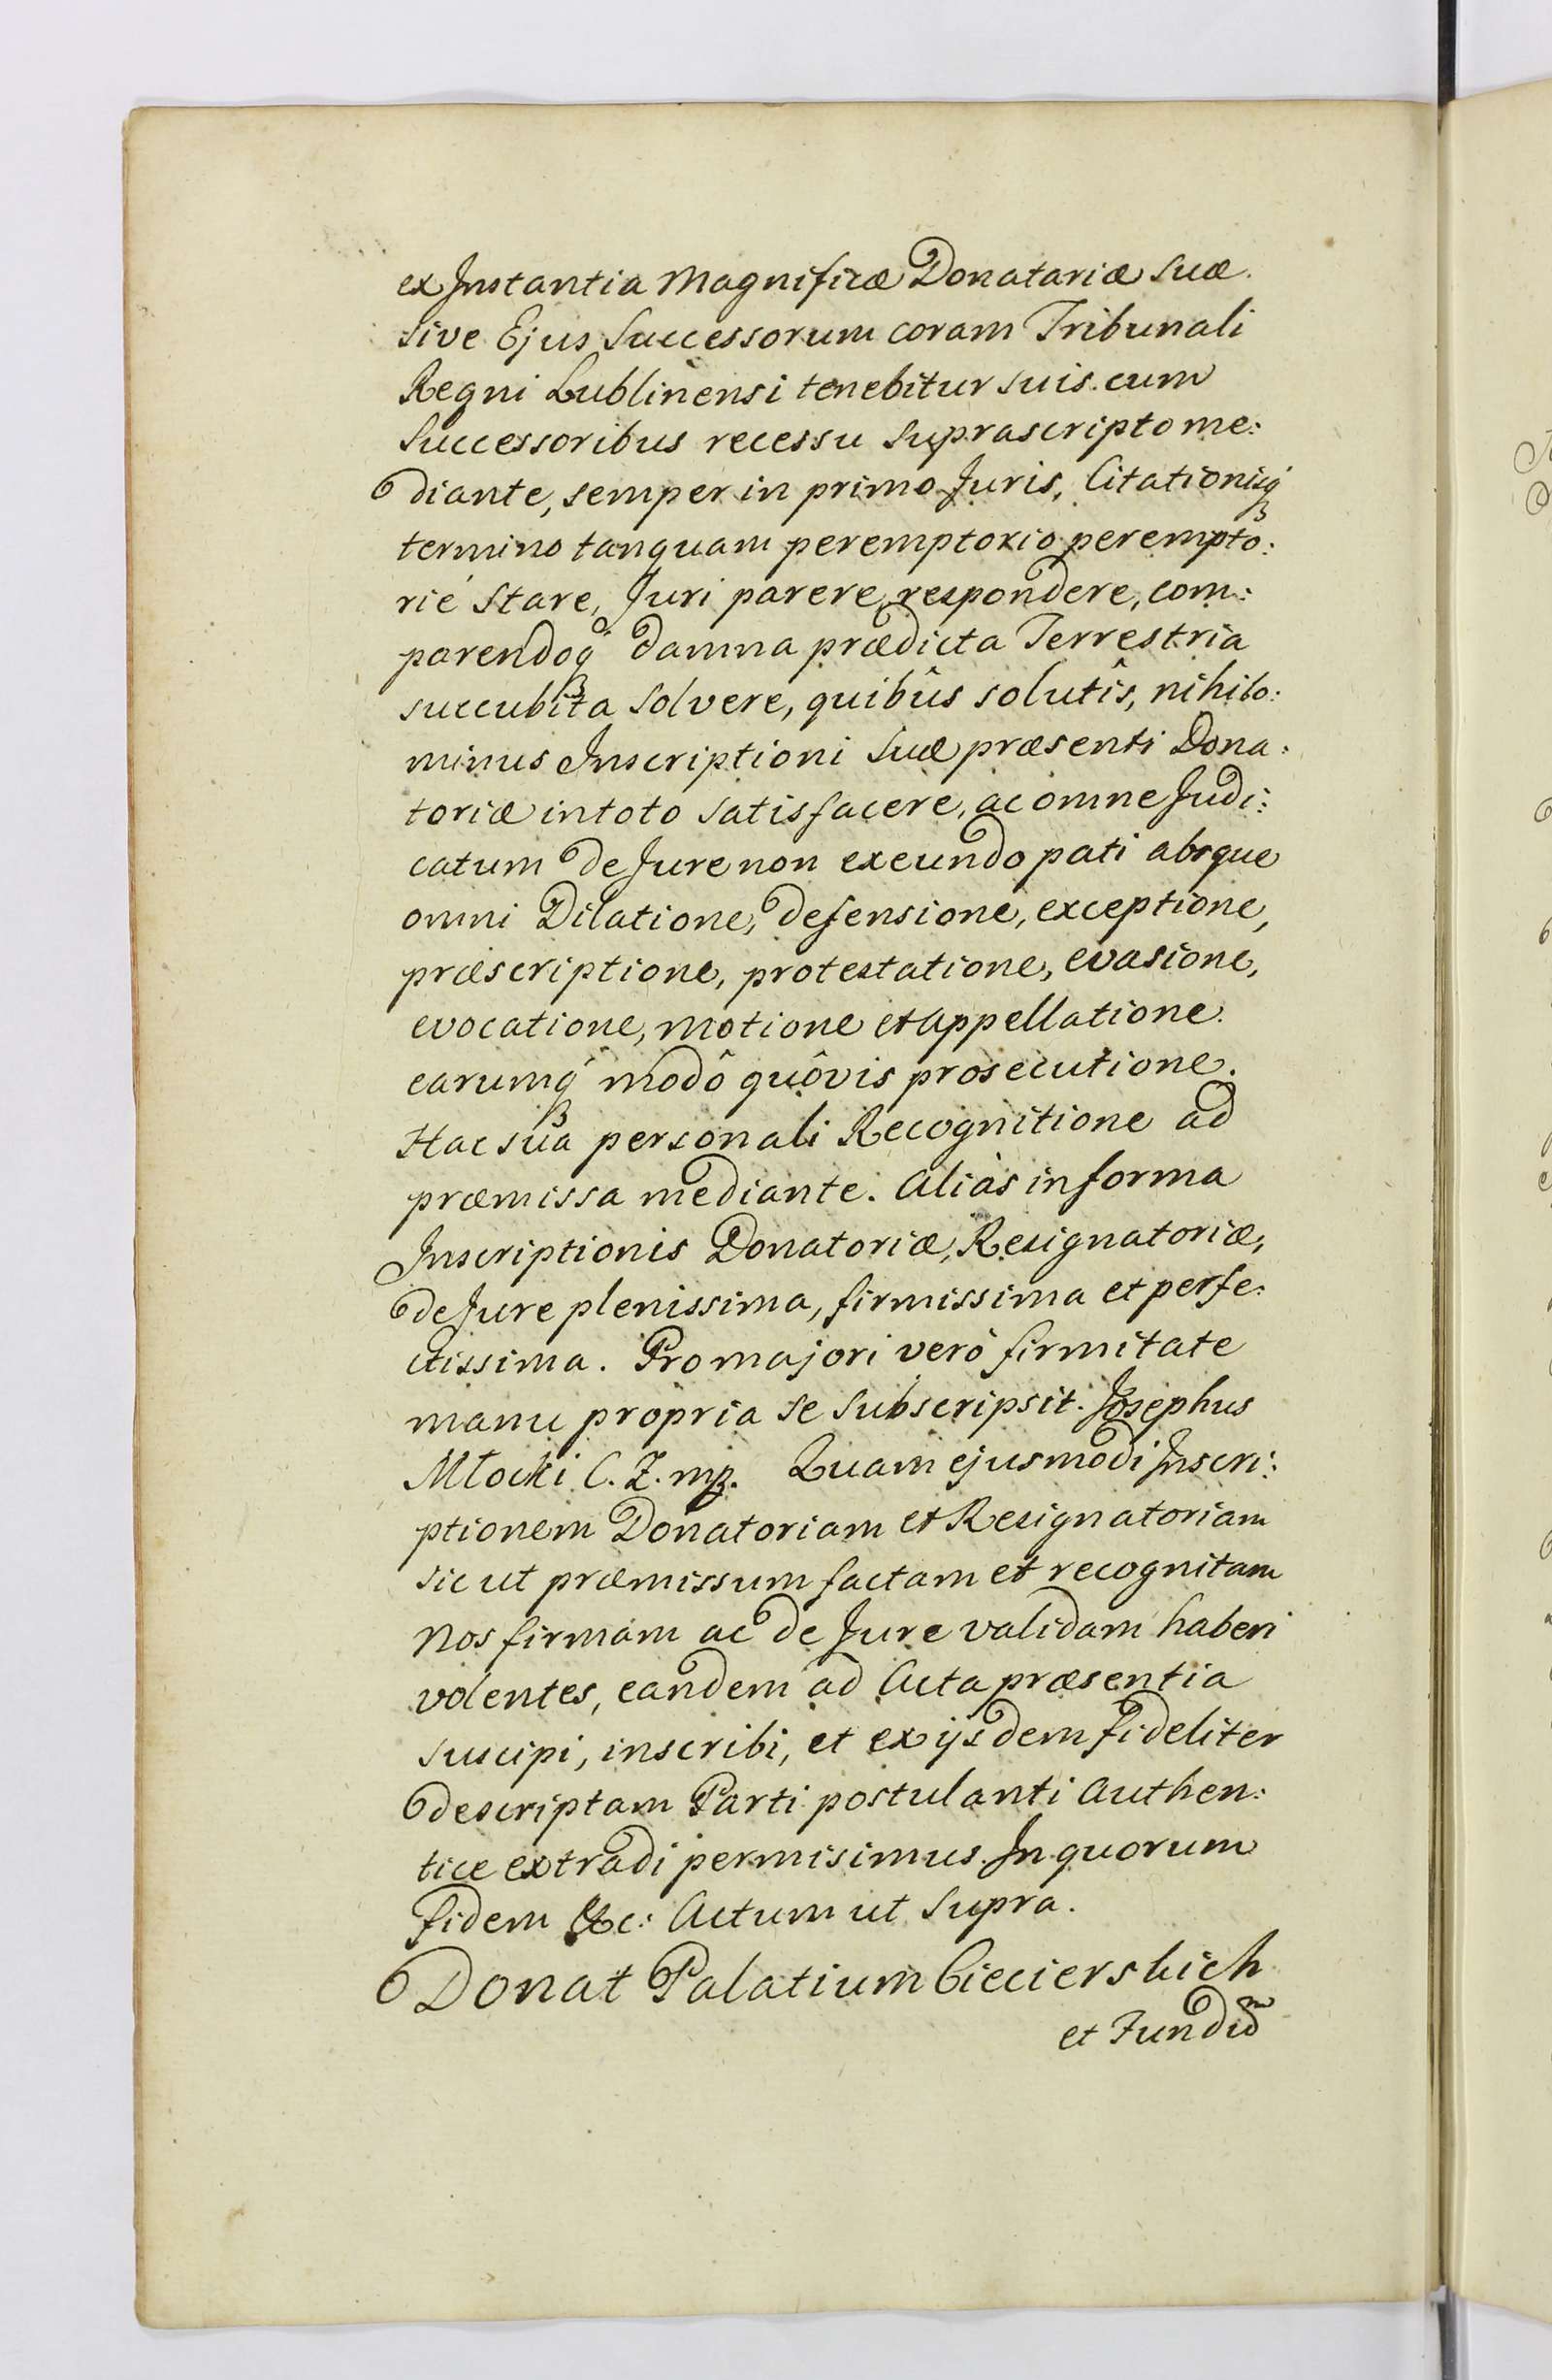 ex Instantia Magnificæ Donatariæ Suæ.
Sive Ejus Successorum coram Tribunali
Regni Lublinensi tenebitur suis cum
Successoribus recessu Suprascripto me:
diante, semper in primo Juris, Citationisq́
termino tanquam peremptorio perempto:
rié Stare, Juri parere, respondere, com:
parendoq́ damna prædicta Terrestria
succubita Solvere, quibûs solutîs, nihilo:
minus Inscriptioni Suæ præsenti Dona:
toriæ in toto Satisfacere, ac omne Judi:
catum de Jure non exeundo pati absque
omni Dilatione, defensione, exceptione,
præscriptione, protestatione, evasione,
evocatione, motione et Appellatione.
earumq́ modô quôvis prosecutione.
Hac sua personali Recognitione ad
præmissa mediante. Aliàs in forma
Inscriptionis Donatoriæ, Resignatoriæ,
de Jure plenissima, firmissima et perfe:
ctissima. Pro majori verò firmitate
manu propria se Subscripsit. Josephus
Młocki C. Z. mp. Quam ejusmodi Inscri:
ptionem Donatoriam et Resignatoriam
sic ut præmissum factam et recognitam
Nos firmam ac de Jure validam haberi
volentes, eandem ad Acta præsentia
suscipi, inscribi, et ex ijsdem fideliter
descriptam Parti postulanti Authen:
tice extradi permisimus. In quorum
fidem &c: Actum ut Supra.
Donat Palatium Ciecierskich
et Fundũ